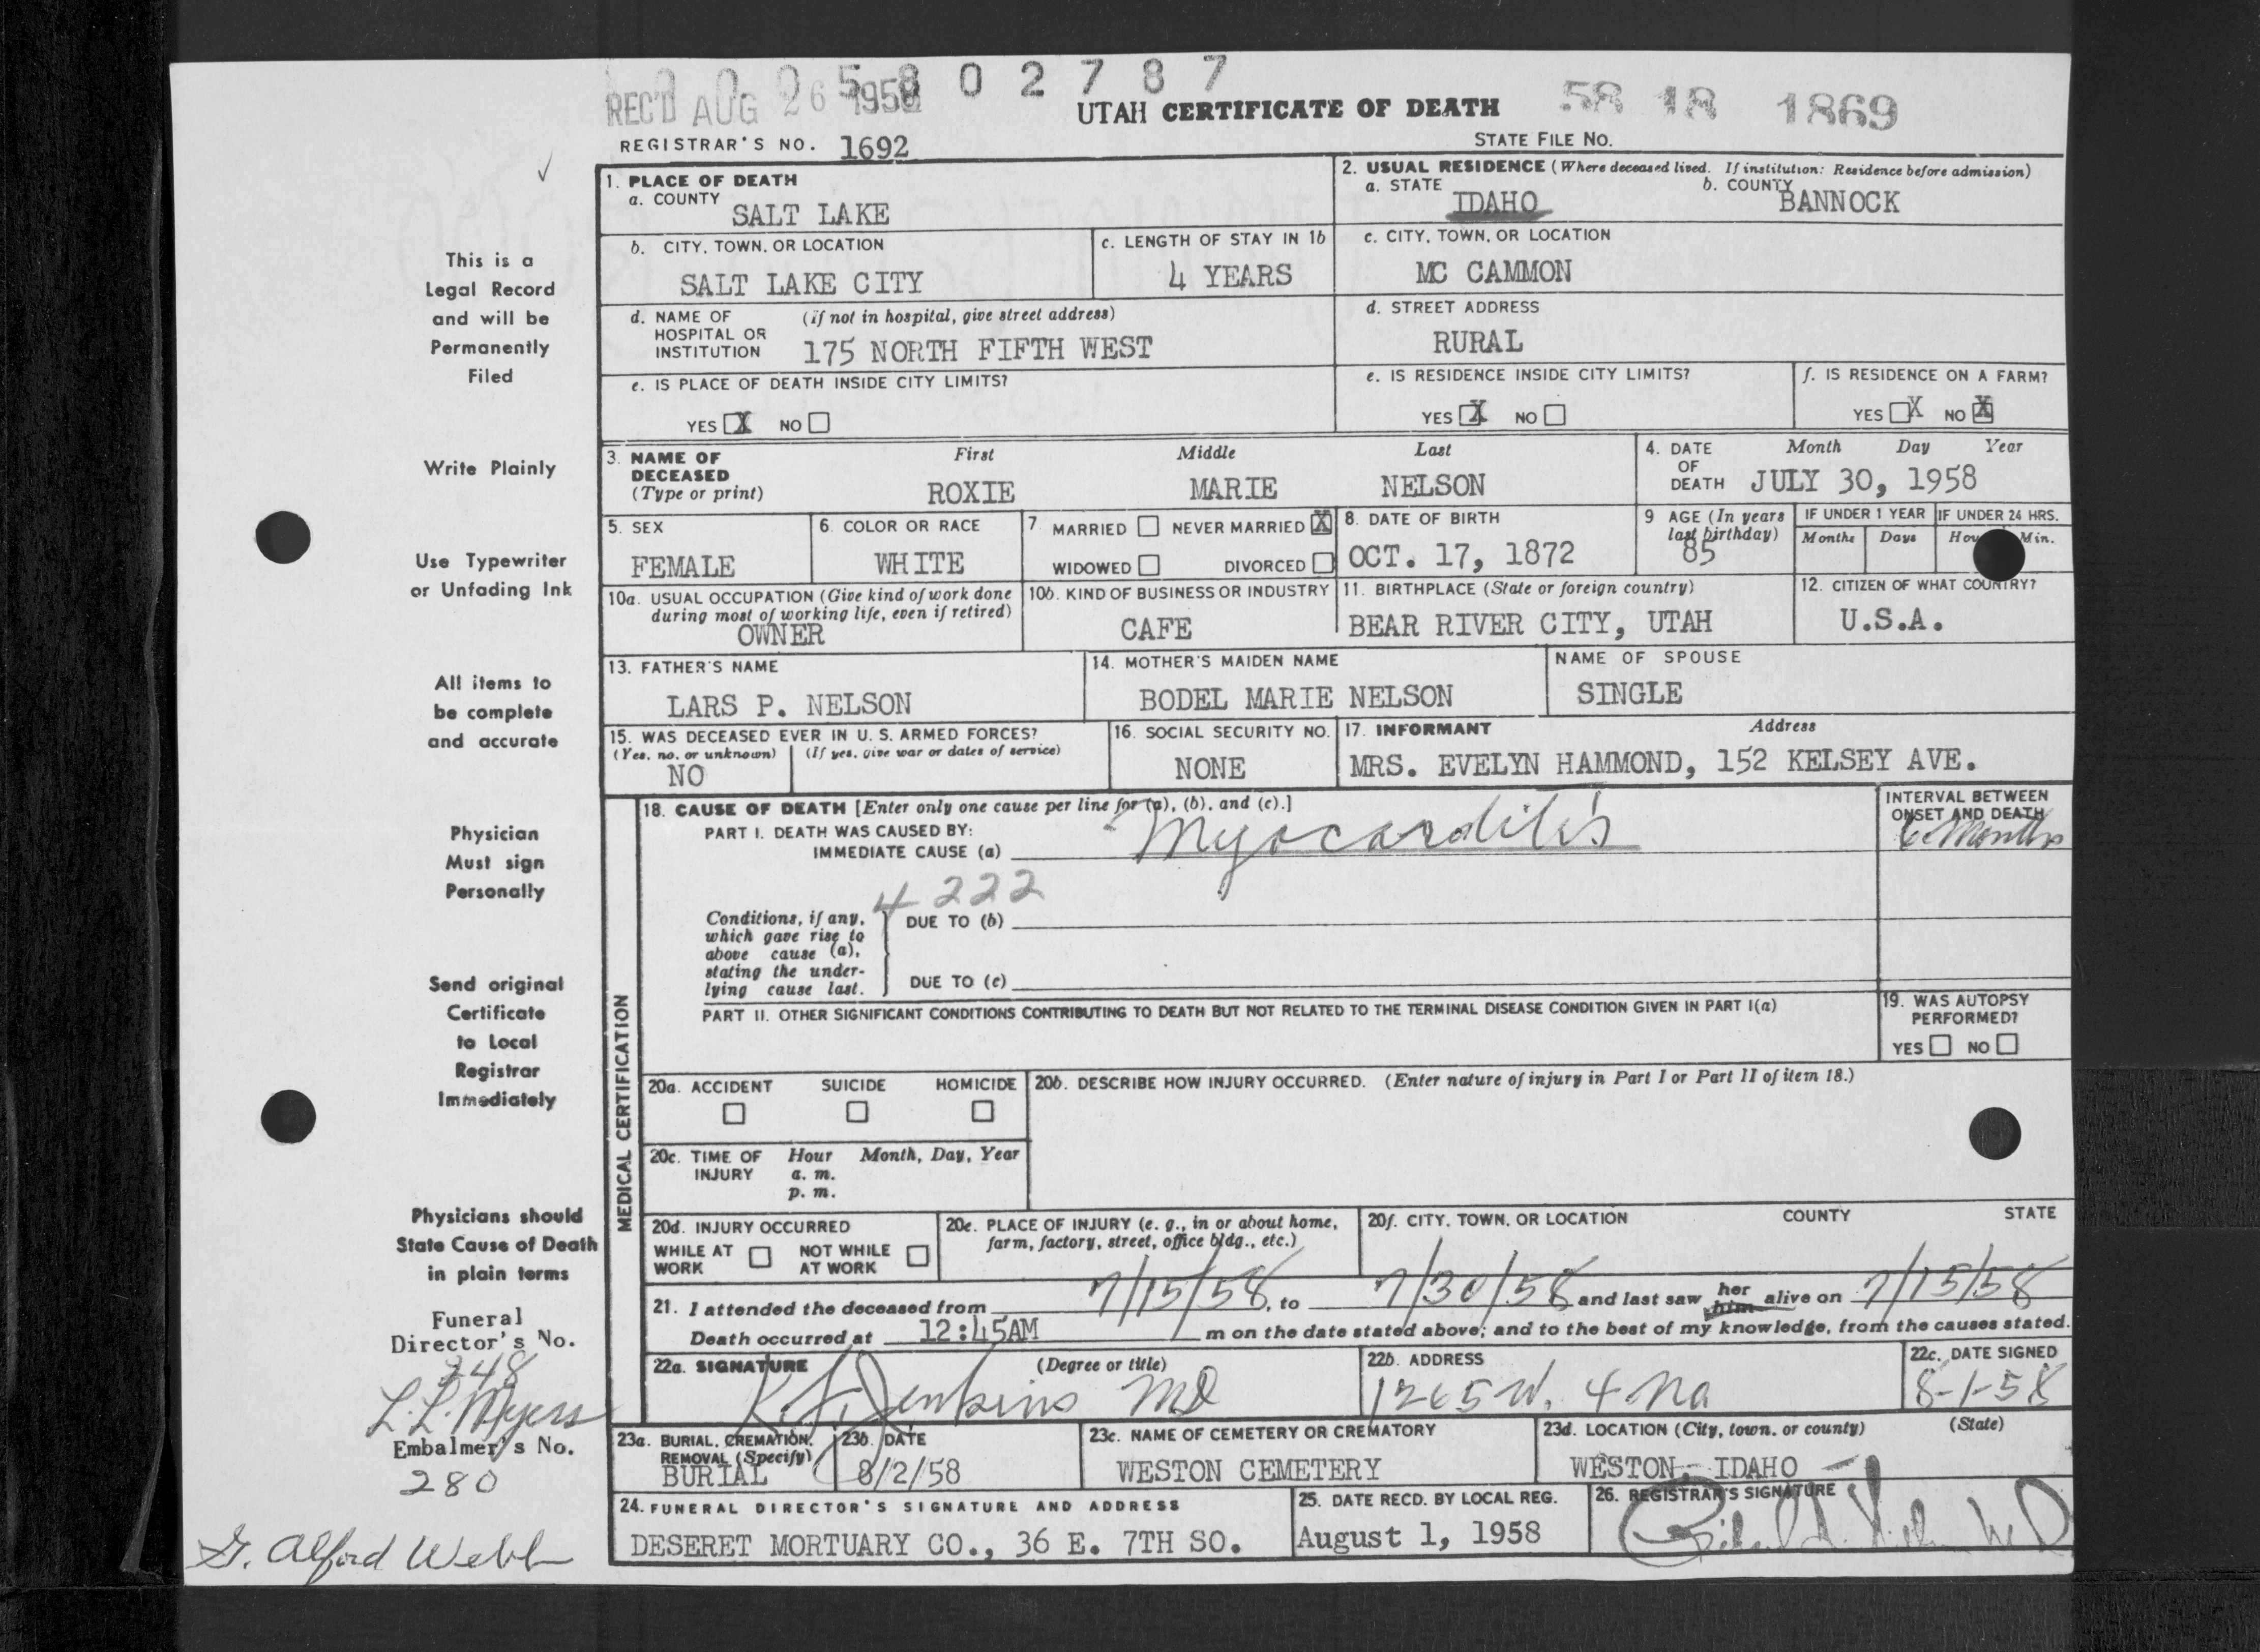 0 0 0 5 8 0 2 7 8 7
REC'D AUG 26 1958
UTAH CERTIFICATE OF DEATH 58 18 1869
REGISTRAR'S NO. 1692
STATE FILE NO.
1. PLACE OF DEATH
a. COUNTY
SALT LAKE
2. USUAL RESIDENCE (Where deceased lived. If institution: Residence before admission)
a. STATE b. COUNTY
IDAHO BANNOCK
b. CITY, TOWN, OR LOCATION
SALT LAKE CITY
c. LENGTH OF STAY IN 1b
4 YEARS
c. CITY, TOWN, OR LOCATION
MC CAMMON
d. NAME OF (if not in hospital, give street address)
HOSPITAL OR
INSTITUTION 175 NORTH FIFTH WEST
d. STREET ADDRESS
RURAL
e. IS PLACE OF DEATH INSIDE CITY LIMITS?
YES X NO
e. IS RESIDENCE INSIDE CITY LIMITS?
YES X NO
f. IS RESIDENCE ON A FARM?
YES X NO X
3. NAME OF First Middle Last
DECEASED
(Type or print) ROXIE MARIE NELSON
4. DATE Month Day Year
OF
DEATH JULY 30, 1958
5. SEX
FEMALE
6. COLOR OR RACE
WHITE
7. MARRIED NEVER MARRIED X
WIDOWED DIVORCED
8. DATE OF BIRTH
OCT. 17, 1872
9 AGE (In years
last birthday)
85
IF UNDER 1 YEAR
Months Days
IF UNDER 24 HRS.
Hou Min.
10a. USUAL OCCUPATION (Give kind of work done
during most of working life, even if retired)
OWNER
10b. KIND OF BUSINESS OR INDUSTRY
CAFE
11. BIRTHPLACE (State or foreign country)
BEAR RIVER CITY, UTAH
12. CITIZEN OF WHAT COUNTRY?
U.S.A.
13. FATHER'S NAME
LARS P. NELSON
14. MOTHER'S MAIDEN NAME
BODEL MARIE NELSON
NAME OF SPOUSE
SINGLE
15. WAS DECEASED EVER IN U. S. ARMED FORCES?
(Yes, no, or unknown) (If yes, give war or dates of service)
NO
16. SOCIAL SECURITY NO.
NONE
17. INFORMANT Address
MRS. EVELYN HAMMOND, 152 KELSEY AVE.
MEDICAL CERTIFICATION
18. CAUSE OF DEATH [Enter only one cause per line for (a), (b), and (c).]
PART I. DEATH WAS CAUSED BY:
IMMEDIATE CAUSE (a) Myocarditis
INTERVAL BETWEEN
ONSET AND DEATH
6 Months
4222
Conditions, if any,
which gave rise to
above cause (a),
stating the under-
lying cause last.
DUE TO (b)
DUE TO (c)
PART II. OTHER SIGNIFICANT CONDITIONS CONTRIBUTING TO DEATH BUT NOT RELATED TO THE TERMINAL DISEASE CONDITION GIVEN IN PART I(a)
19. WAS AUTOPSY
PERFORMED?
YES NO
20a. ACCIDENT SUICIDE HOMICIDE
20b. DESCRIBE HOW INJURY OCCURRED. (Enter nature of injury in Part I or Part II of item 18.)
20c. TIME OF Hour Month, Day, Year
INJURY a. m.
p. m.
20d. INJURY OCCURRED
WHILE AT NOT WHILE
WORK AT WORK
20e. PLACE OF INJURY (e. g., in or about home,
farm, factory, street, office bldg., etc.)
20f. CITY, TOWN, OR LOCATION COUNTY STATE
21. I attended the deceased from 7/15/58, to 7/30/58 and last saw her him alive on 7/15/58
Death occurred at 12:45AM m on the date stated above; and to the best of my knowledge, from the causes stated.
22a. SIGNATURE (Degree or title)
Jenkins MD
22b. ADDRESS
1265 W. 4 No
22c. DATE SIGNED
8-1-58
23a. BURIAL, CREMATION,
REMOVAL (Specify)
BURIAL
23b. DATE
8/2/58
23c. NAME OF CEMETERY OR CREMATORY
WESTON CEMETERY
23d. LOCATION (City, town, or county) (State)
WESTON, IDAHO
24. FUNERAL DIRECTOR'S SIGNATURE AND ADDRESS
DESERET MORTUARY CO., 36 E. 7TH SO.
25. DATE RECD. BY LOCAL REG.
August 1, 1958
26. REGISTRAR'S SIGNATURE
This is a
Legal Record
and will be
Permanently
Filed
Write Plainly
Use Typewriter
or Unfading Ink
All items to
be complete
and accurate
Physician
Must sign
Personally
Send original
Certificate
to Local
Registrar
Immediately
Physicians should
State Cause of Death
in plain terms
Funeral
Director's No.
348
L. L. Myers
Embalmer's No.
280
G. Alford Webb